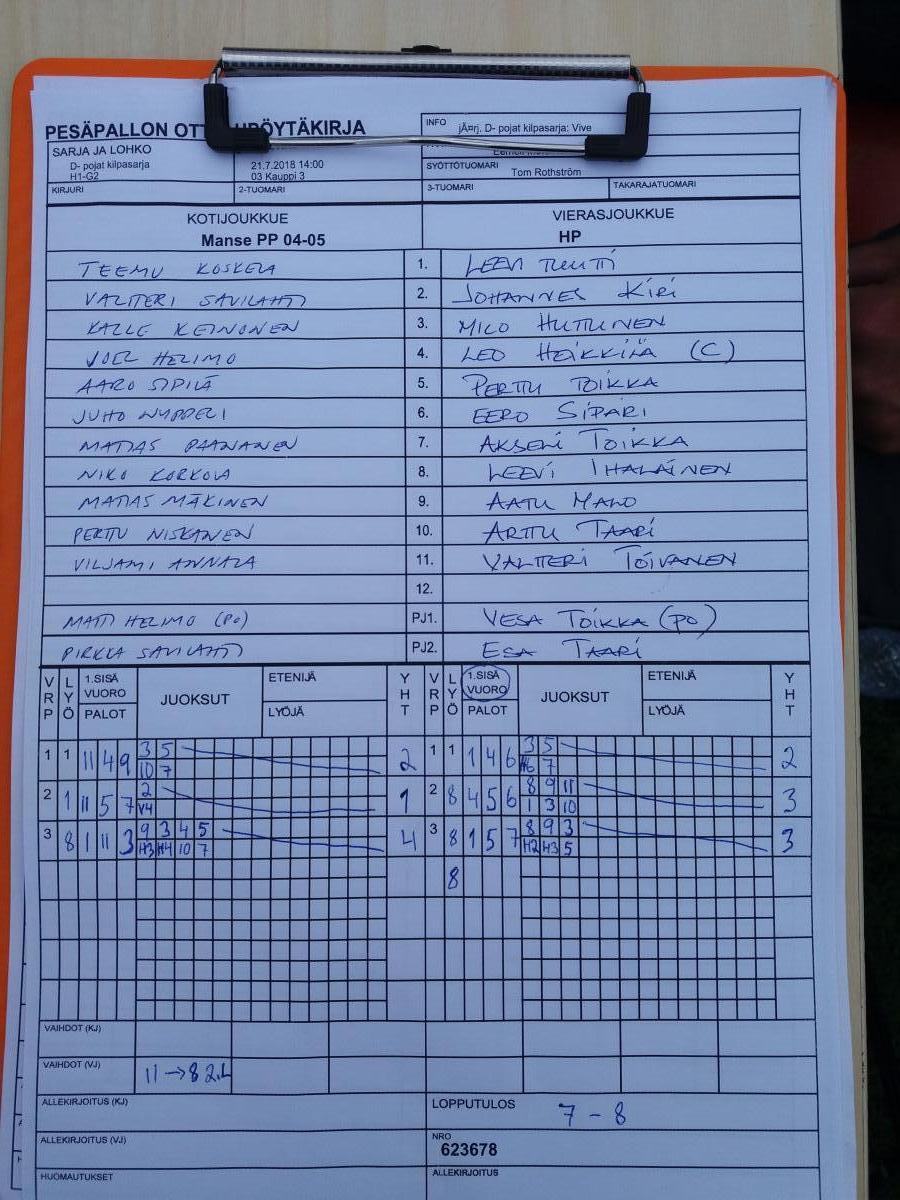 PESÄPALLON OTT PÖYTÄKIRJA
INFO jÃ¤rj. D- pojat kilpasarja: Vive
SARJA JA LOHKO
D- pojat kilpasarja
H1-G2
21.7.2018 14:00
03 Kauppi 3
SYÖTTÖTUOMARI
Tom Rothström
KIRJURI 2-TUOMARI 3-TUOMARI TAKARAJATUOMARI
KOTIJOUKKUE VIERASJOUKKUE
Manse PP 04-05 HP
TEEMU KOSKELA 1. LEEVI TUUTTI
VALTTERI SAVILAHTI 2. JOHANNES KIRI
KALLE KEINONEN 3. MILO HUTTUNEN
JOEL HELIMO 4. LEO HEIKKILÄ (C)
AARO SIPILÄ 5. PERTTU TOIKKA
JUHO NYPPELI 6. EERO SIPARI
MATIAS PAANANEN 7. AKSELI TOIKKA
NIKO KORKOLA 8. LEEVI IHALAINEN
MATIAS MÄKINEN 9. AATU MALO
PERTTU NISKANEN 10. ARTTU TAARI
VILJAMI ANNALA 11. VALTTERI TOIVANEN
12.
MATTI HELIMO (PO) PJ1. VESA TOIKKA (PO)
PIRKKA SAVILAHTI PJ2. ESA TAARI
VRP LYÖ 1.SISÄ VUORO PALOT JUOKSUT ETENIJÄ LYÖJÄ YHT VRP LYÖ 1.SISÄ VUORO PALOT JUOKSUT ETENIJÄ LYÖJÄ YHT
1 1 11 4 9 3 5 2 1 1 1 4 6 3 5 2
10 7 H6 7
2 1 11 5 7 2 1 2 8 4 5 6 8 9 11 3
V4 1 3 10
3 8 1 11 3 9 3 4 5 4 3 8 1 5 7 8 9 3 3
H3 H4 10 7 H2 H3 5
8
VAIHDOT (KJ)
VAIHDOT (VJ) 11 → 8 2.L
ALLEKIRJOITUS (KJ) LOPPUTULOS 7 - 8
ALLEKIRJOITUS (VJ) NRO
623678
HUOMAUTUKSET ALLEKIRJOITUS